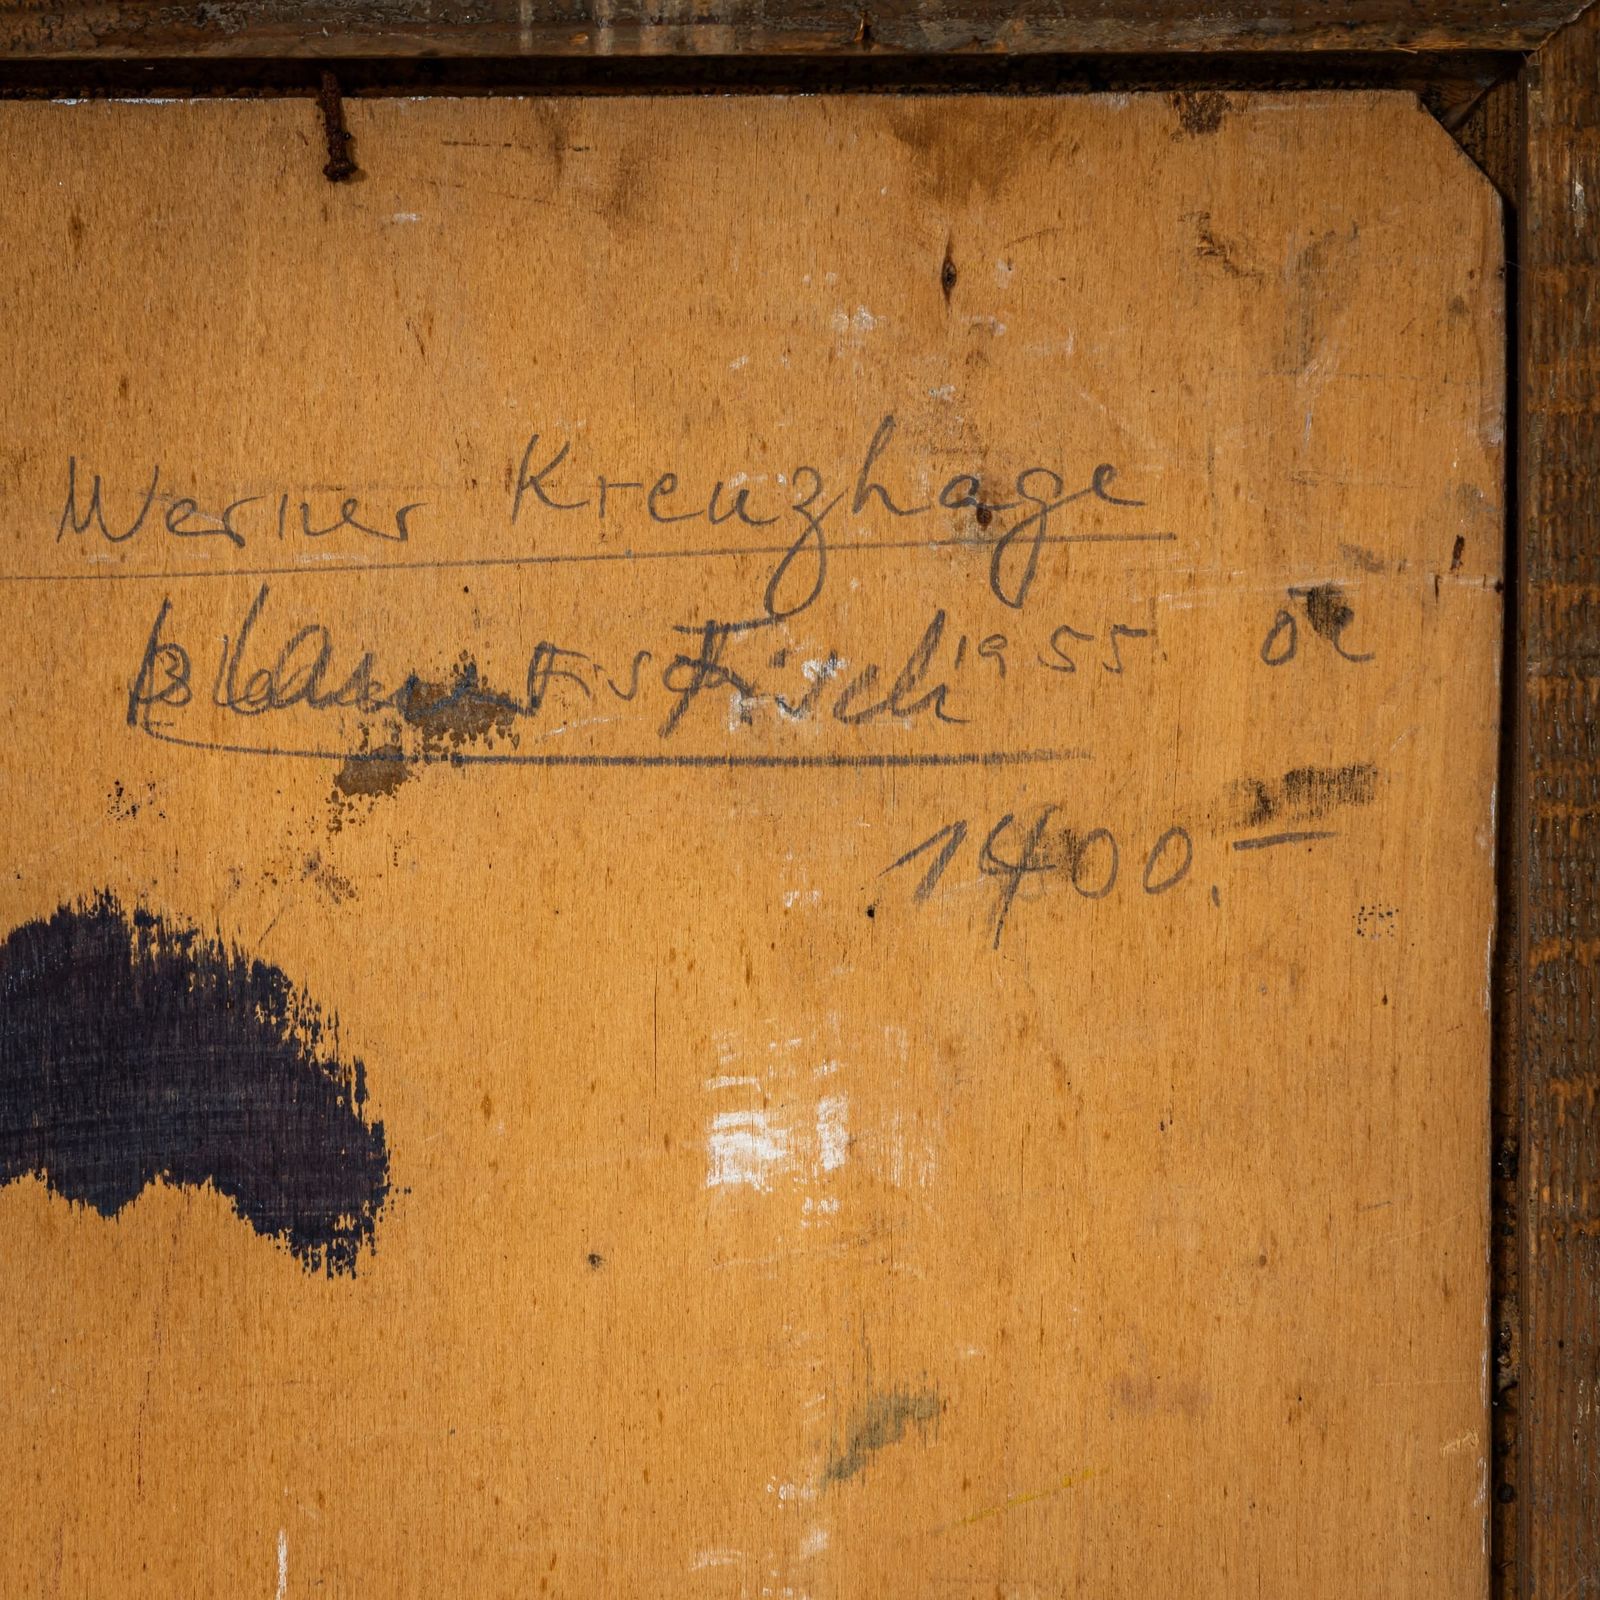 Werner Kreuzhage
Blauer Fisch 1955 Öl
1400.—